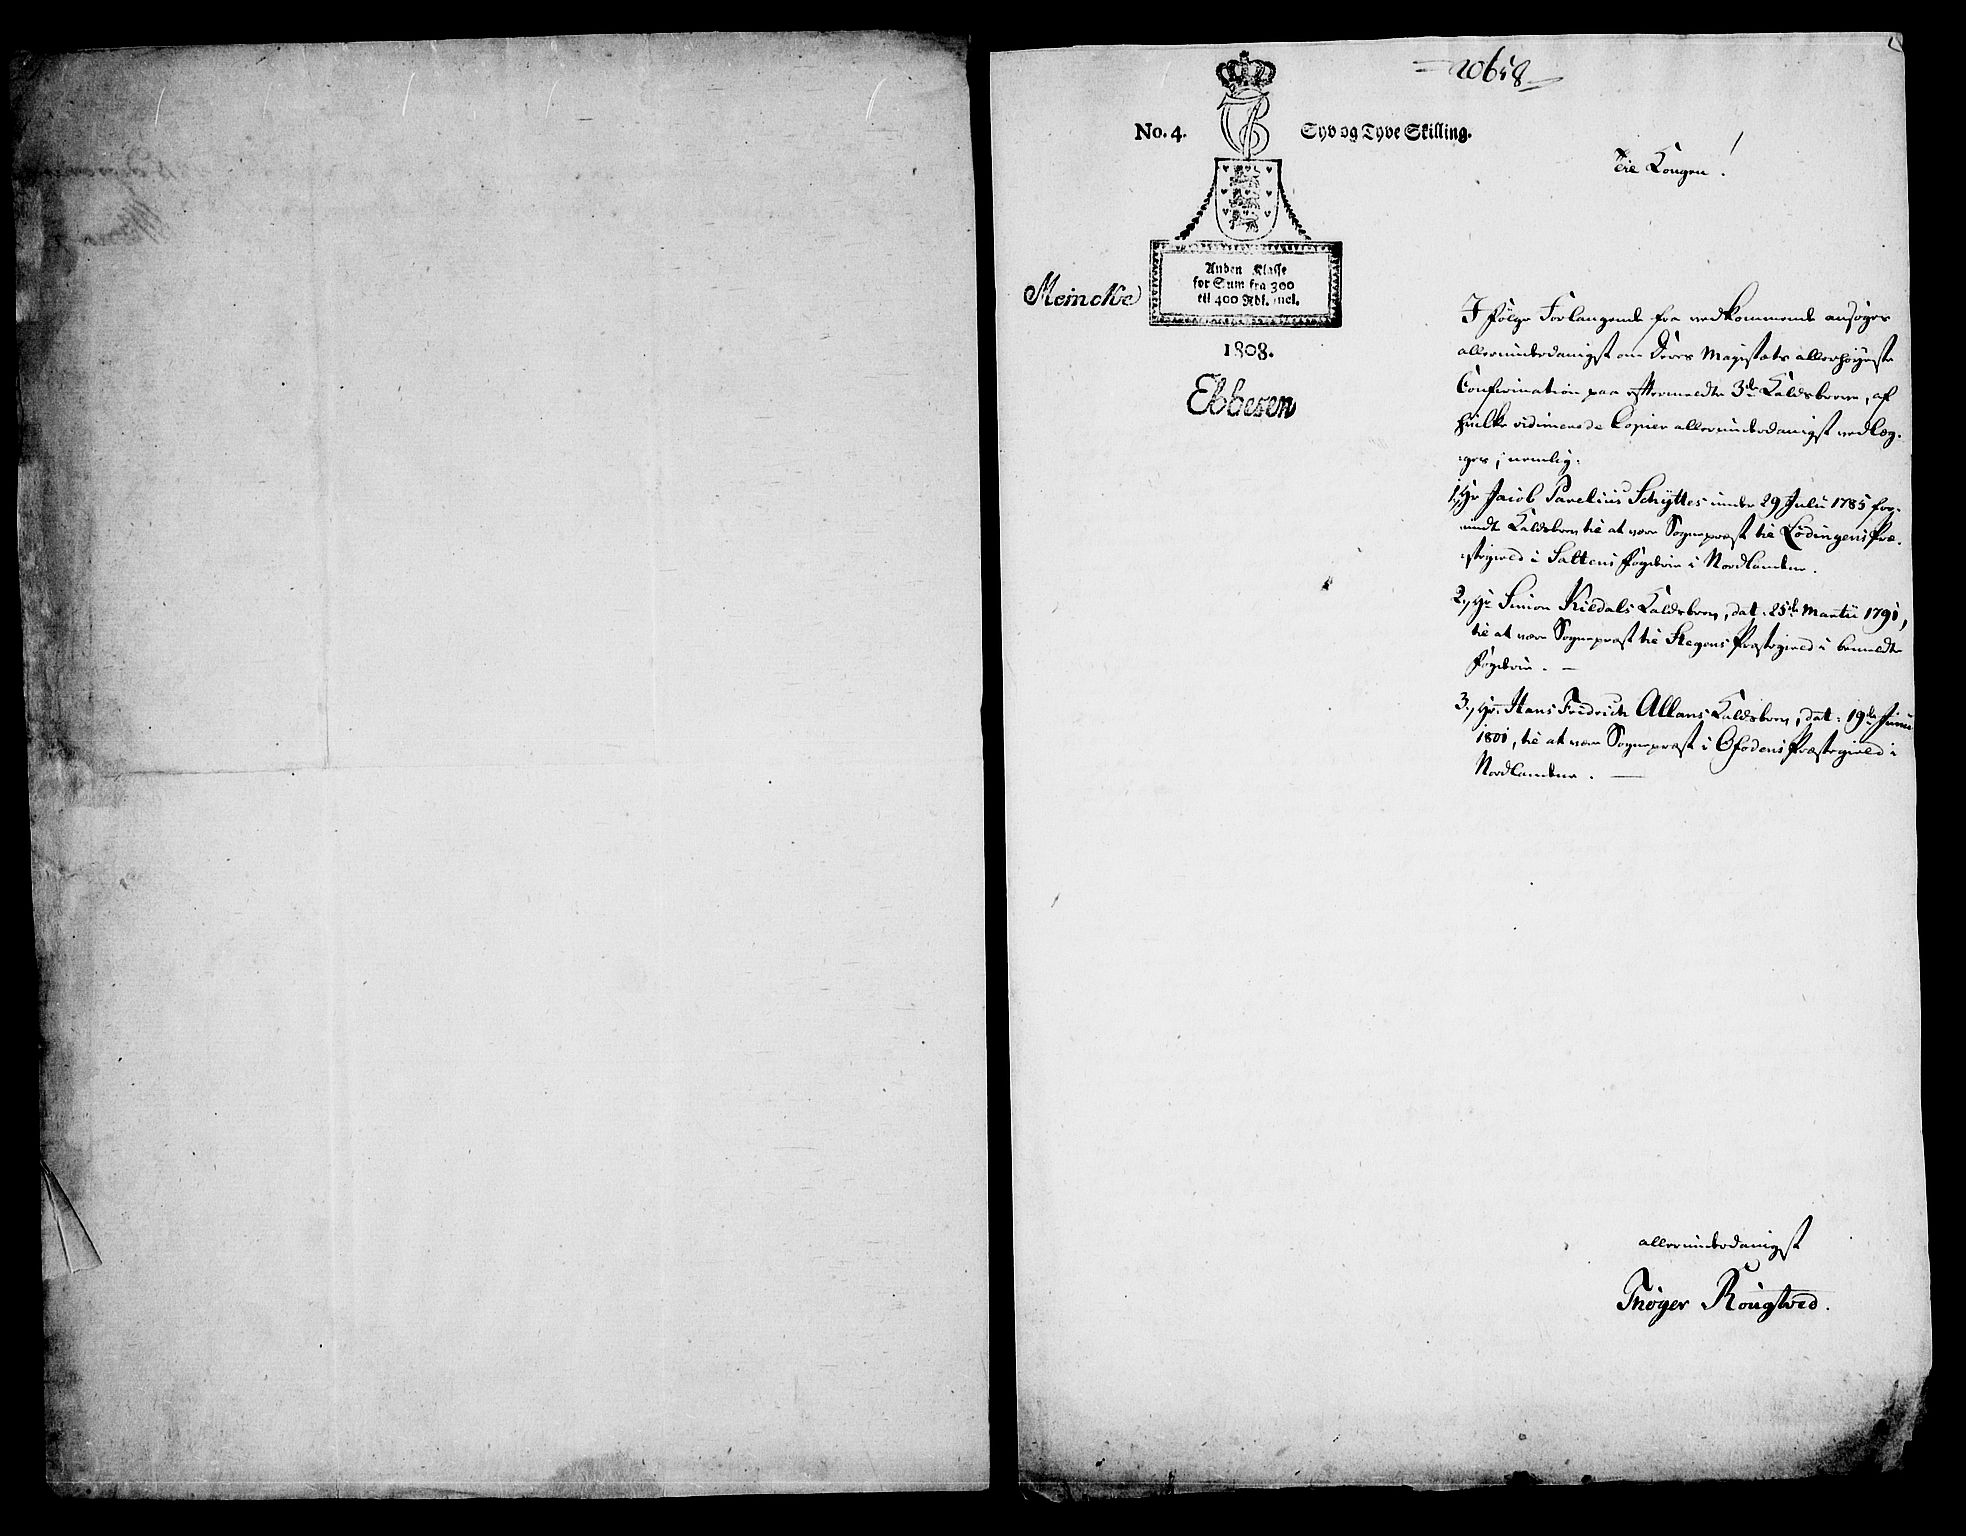 20658
No. 4. Syv og Tyve Skilling.
Til Kongen!
Anden Klasse
for Sum fra 300
til 400 Rdl. incl.
Meincke
1808.
Ebbesen
I følge Forlangende fra vedkommende ansøges
allerunderdanigst om Deres Majestæts allerhøyeste
Confirmation paa eftermeldte 3de Kaldsbreve, af
hvilke vidimerede Copier allerunderdanigst vedlæg-
ges, nemlig:
1, Hr Jacob Parelius Schyttes under 29 Julii 1785 for-
undte Kaldsbrev til at være Sognepræst til Lødingens Præ-
stegield i Saltens Fogderie i Nordlandene.
2, Hr Simon Kildals Kaldsbrev, dat: 25de Martii 1791,
til at være Sognepræst til Stegens Præstegield i bemeldte
Fogderie. —
3, Hr. Hans Fridrich Allans Kaldsbrev, dat: 19de Junii
1801, til at være Sognepræst i Ofodens Præstegield i
Nordlandene. —
allerunderdanigst
Thøger Rougtved.